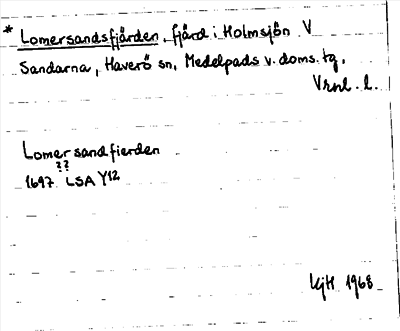 * Lomersandsfjärden, fjärd i Holmsjön V
Sandarna, Haverö sn, Medelpads v. doms. tg,
Vrnl. l.
Lomersandfierden
??
1697 LSA Y12
KjH 1968